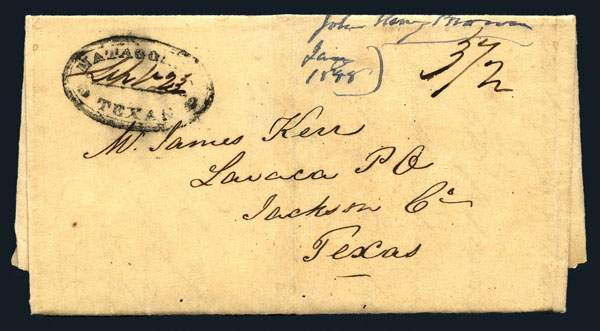 MATAGORDA
Sept 23
TEXAS
John Henry Brown
Jan
1888
37/2
Mr James Kerr
Lavaca P O
Jackson Co
Texas